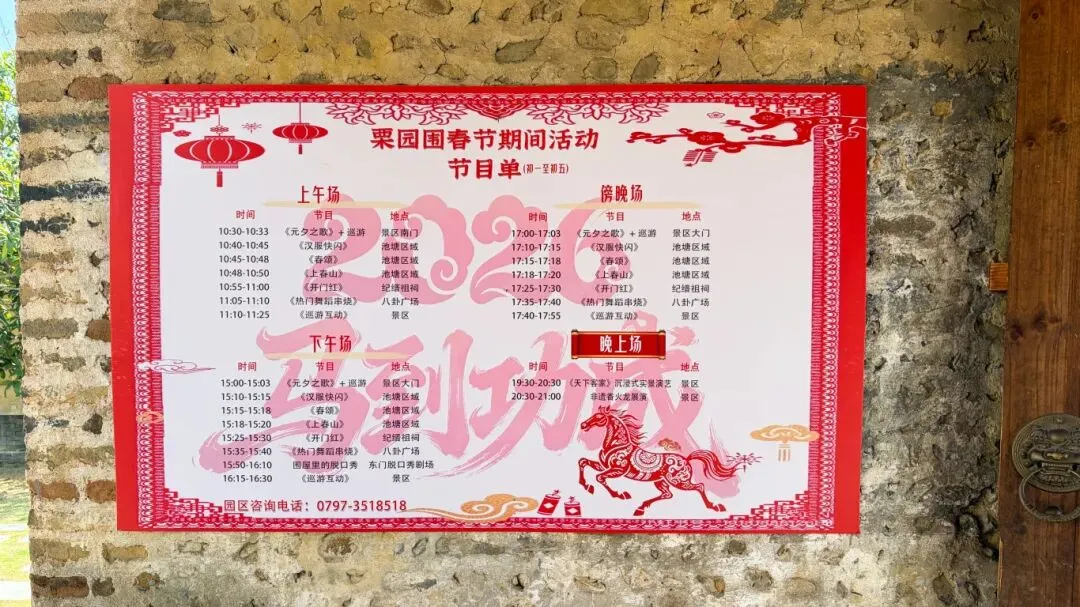 栗园围春节期间活动
节目单(初一至初五)
上午场
时间 节目 地点
10:30-10:33 《元夕之歌》+巡游 景区南门
10:40-10:45 《汉服快闪》 池塘区域
10:45-10:48 《春颂》 池塘区域
10:48-10:50 《上春山》 池塘区域
10:55-11:00 《开门红》 纪缙祖祠
11:05-11:10 《热门舞蹈串烧》 八卦广场
11:10-11:25 《巡游互动》 景区
傍晚场
时间 节目 地点
17:00-17:03 《元夕之歌》+巡游 景区大门
17:10-17:15 《汉服快闪》 池塘区域
17:15-17:18 《春颂》 池塘区域
17:18-17:20 《上春山》 池塘区域
17:25-17:30 《开门红》 纪缙祖祠
17:35-17:40 《热门舞蹈串烧》 八卦广场
17:40-17:55 《巡游互动》 景区
2026
马到功成
下午场
时间 节目 地点
15:00-15:03 《元夕之歌》+巡游 景区大门
15:10-15:15 《汉服快闪》 池塘区域
15:15-15:18 《春颂》 池塘区域
15:18-15:20 《上春山》 池塘区域
15:25-15:30 《开门红》 纪缙祖祠
15:35-15:40 《热门舞蹈串烧》 八卦广场
15:50-16:10 围屋里的脱口秀 东门脱口秀剧场
16:15-16:30 《巡游互动》 景区
晚上场
时间 节目 地点
19:30-20:30 《天下客家》沉浸式实景演艺 景区
20:30-21:00 非遗香火龙展演 景区
园区咨询电话：0797-3518518